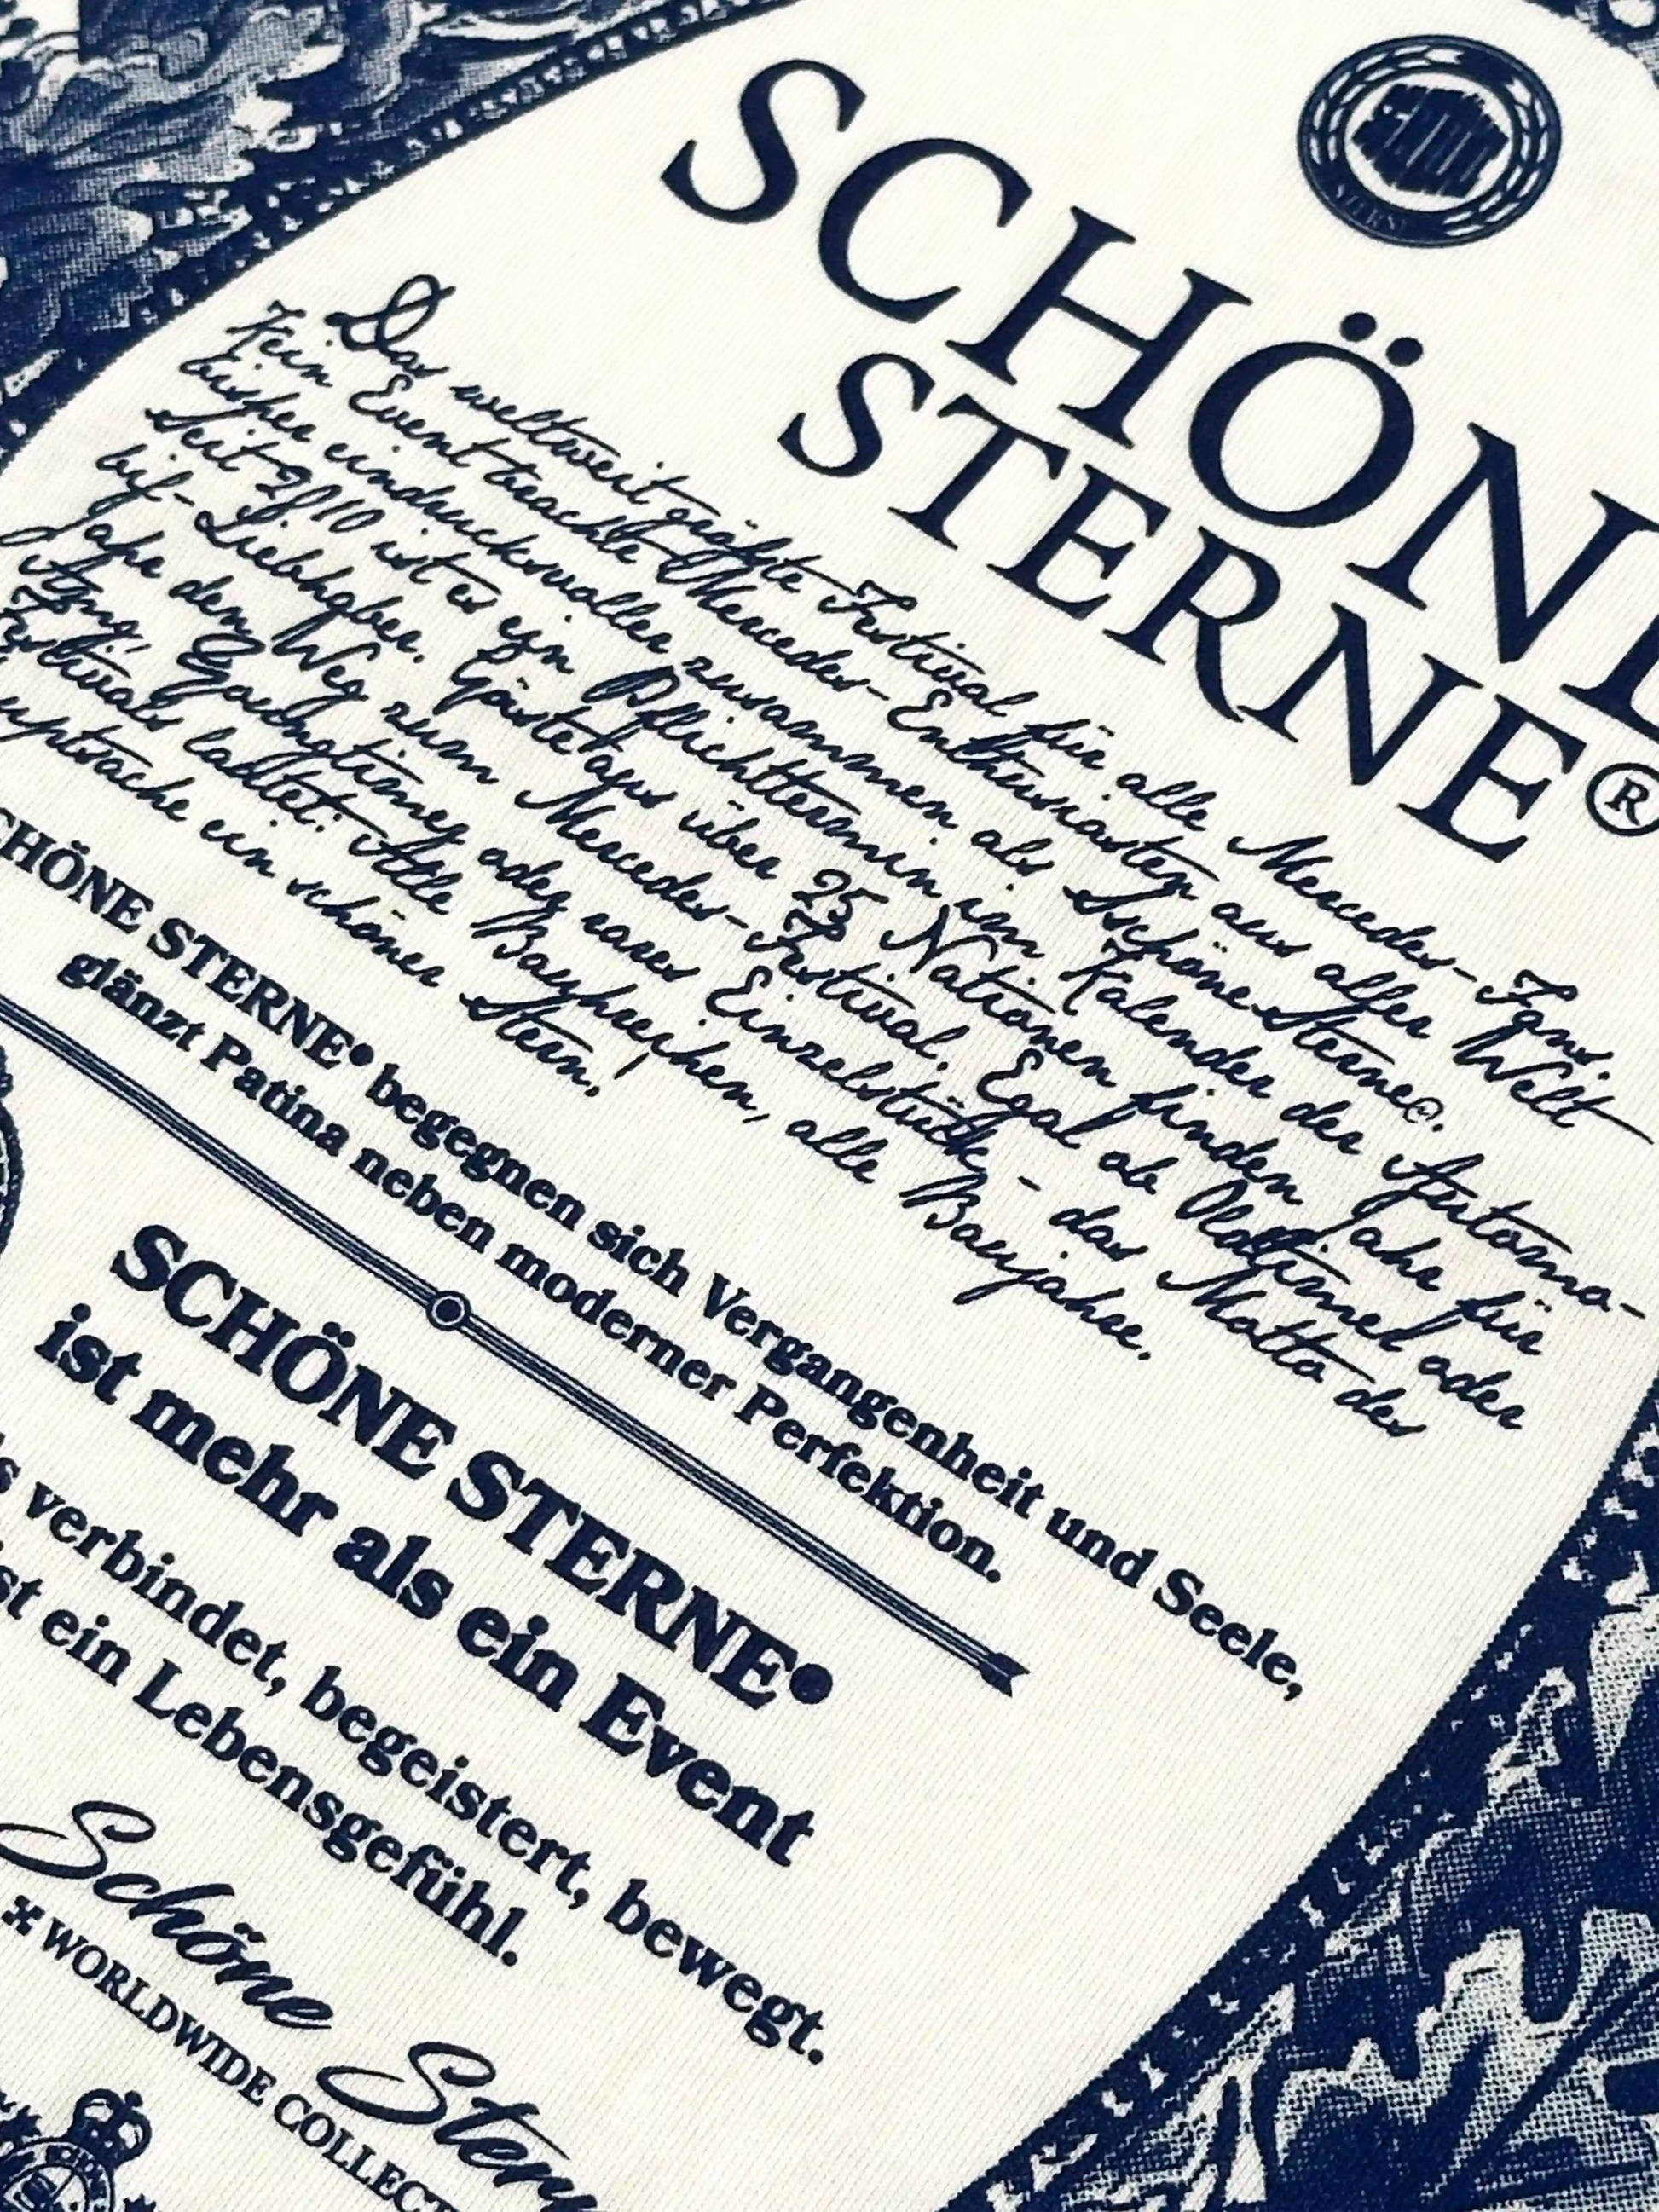 STERNE
SCHÖNE
STERNE®
Das weltweit größte Festival für alle Mercedes-Fans.
Kein Event brachte Mercedes-Enthusiasten aus aller Welt
bisher eindrucksvoller zusammen als Schöne Sterne®.
Seit 2010 ist es ein Pflichttermin im Kalender der Automo-
bil-Liebhaber. Gäste aus über 25 Nationen finden Jahr für
Jahr den Weg zum Mercedes-Festival. Egal ob Oldtimer oder
Youngtimer oder rares Einzelstück - das Motto des
Festivals lautet: Alle Baureihen, alle Baujahre.
uptsache ein schöner Stern!
CHÖNE STERNE® begegnen sich Vergangenheit und Seele,
glänzt Patina neben moderner Perfektion.
SCHÖNE STERNE®
ist mehr als ein Event
s verbindet, begeistert, bewegt.
st ein Lebensgefühl.
Schöne Stern
WORLDWIDE COLLECT